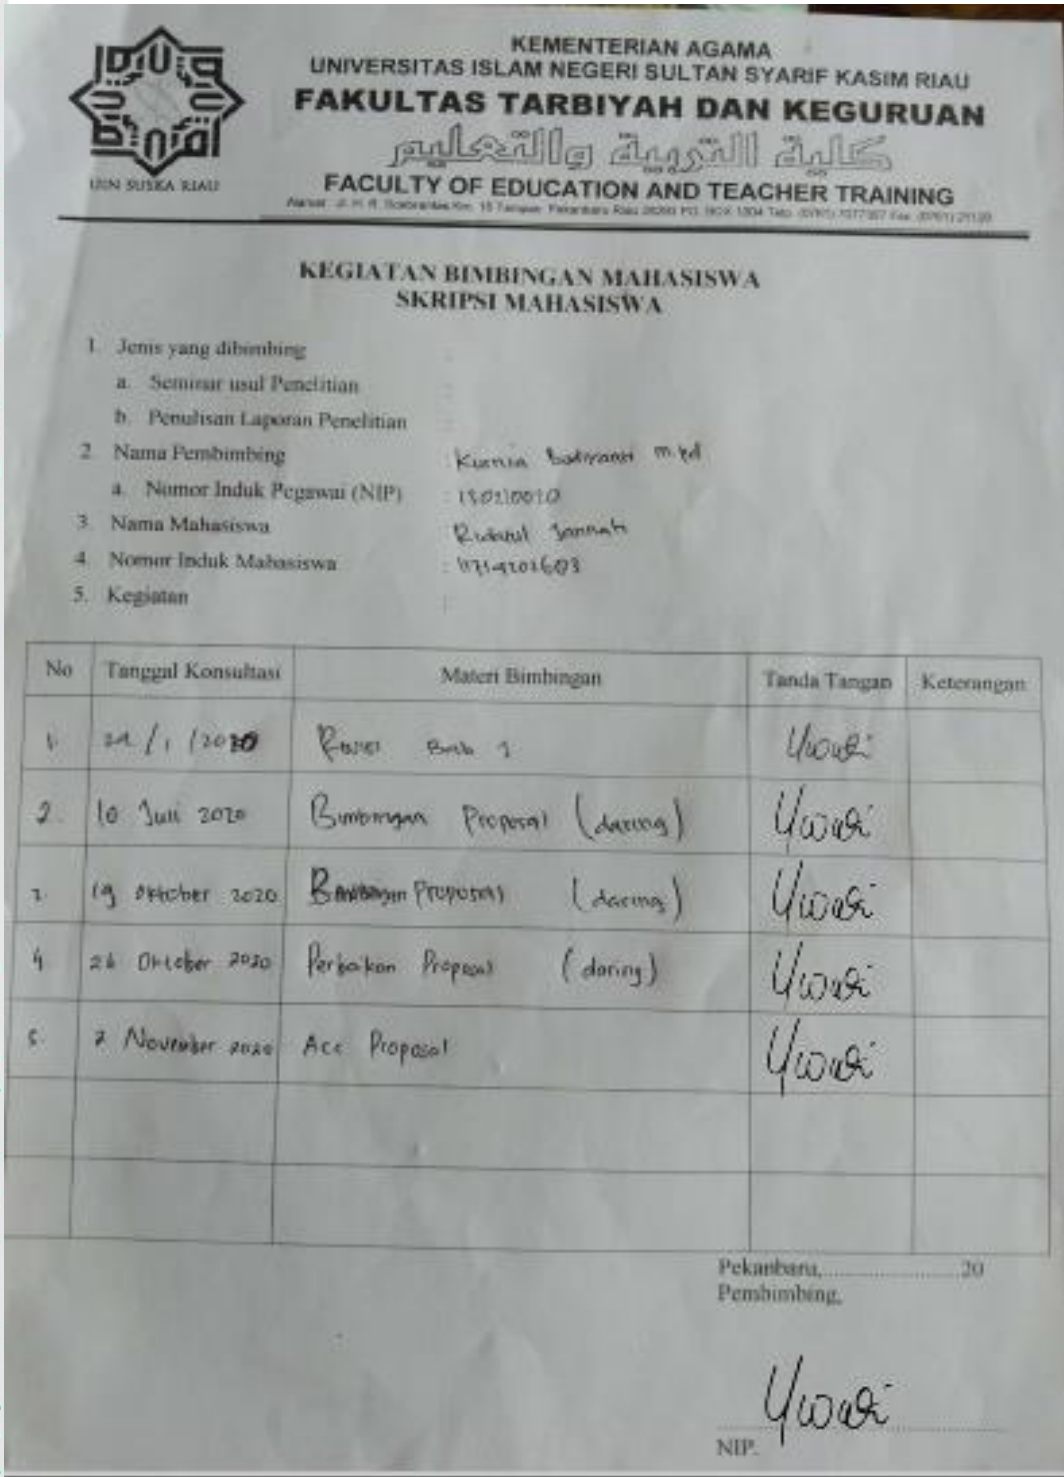 UIN SUSKA RIAU
KEMENTERIAN AGAMA
UNIVERSITAS ISLAM NEGERI SULTAN SYARIF KASIM RIAU
FAKULTAS TARBIYAH DAN KEGURUAN
كلية التربية والتعليم
FACULTY OF EDUCATION AND TEACHER TRAINING
Alamat : Jl. H. R. Soebrantas Km. 15 Tampan Pekanbaru Riau 28293 PO. BOX 1004 Telp.
KEGIATAN BIMBINGAN MAHASISWA
SKRIPSI MAHASISWA
1. Jenis yang dibimbing :
a. Seminar usul Penelitian :
b. Penulisan Laporan Penelitian :
2. Nama Pembimbing : Kurnia M.Pd
a. Nomor Induk Pegawai (NIP) :
3. Nama Mahasiswa Jannah
4. Nomor Induk Mahasiswa :
5. Kegiatan :
No Tanggal Konsultasi Materi Bimbingan Tanda Tangan Keterangan
1. Revisi Bab 1
2. 10 Juli 2020 Bimbingan Proposal (daring)
3. 19 Oktober 2020 Bimbingan Proposal (daring)
4. 26 Oktober 2020 Perbaikan Proposal (daring)
5. 2 November 2020 Acc Proposal
Pekanbaru,........................20
Pembimbing,
NIP.